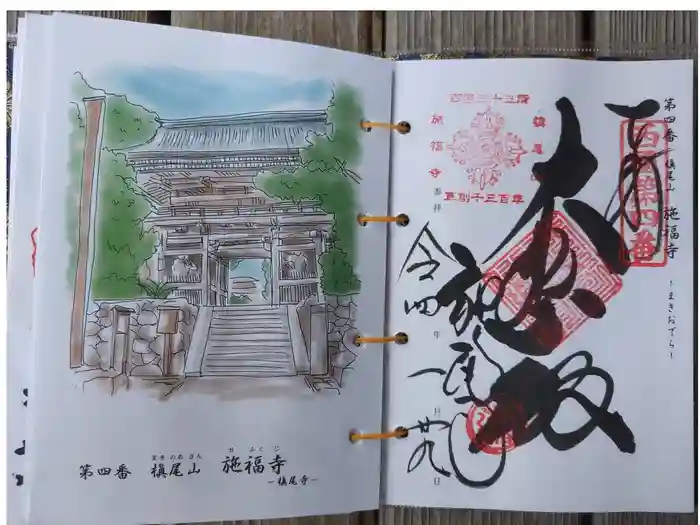 第四番 槇尾山 施福寺
まきのおさん
せふくじ
-槇尾寺-
第四番 槇尾山 施福寺 -まきおでら-
西国第四番
奉拝
大悲殿
施福寺
令四年一月廿九日
西国三十三所
槇尾山
施福寺
草創千三百年